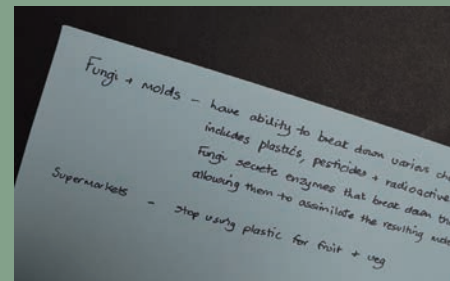 Fungi + molds – have ability to break down various
includes plastics, pesticides + radioactive
Fungi secrete enzymes that break down
allowing them to assimilate the resulting
Supermarkets – stop using plastic for fruit + veg